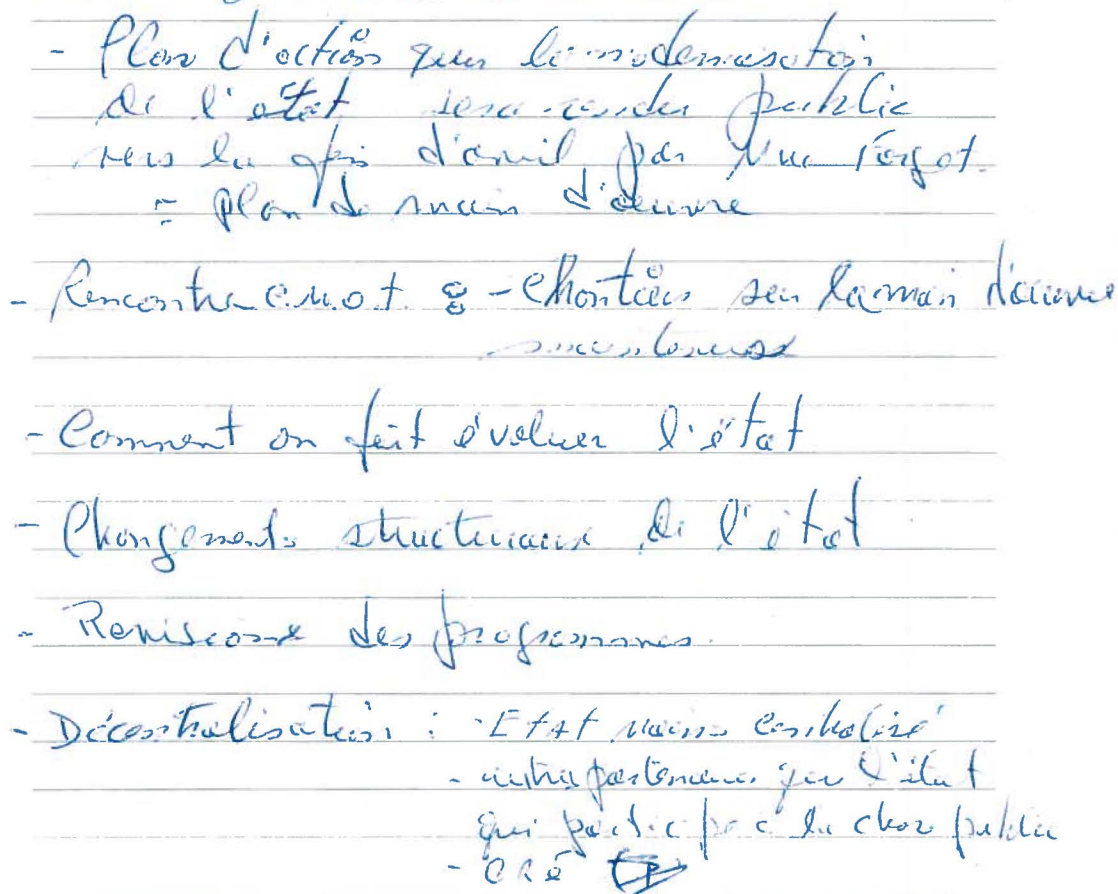 - Plan d'action sur la modernisation
de l'état sera rendu public
vers la fin d'avril par Mme Forget.
= plan de main d'oeuvre
- Rencontre C.M.O.T. : - Chantier sur la main d'oeuvre
- Comment on fait évoluer l'état
- Changements structuraux de l'état
- Révisions des programmes.
- Décentralisation : - ETAT moins centralisé
- autres partenaires que l'état
qui participe à la chose publique
- CRÉ